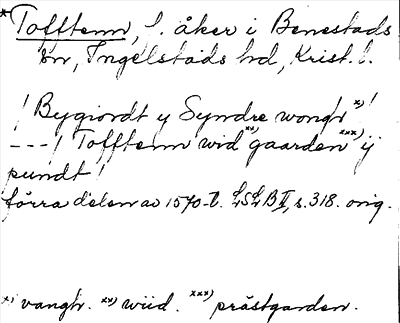 *Tofften, f. åker i Benestads
sn, Ingelstads hd, Krist. l.
! Bygiordt y Syndre wongh x) !
---! Tofften wid xx) gaarden xxx) ij
pundt !
förra delen av 1570-t. LSLB II, s. 318. orig.
x) vangh. xx) wiid. xxx) préstgarden.